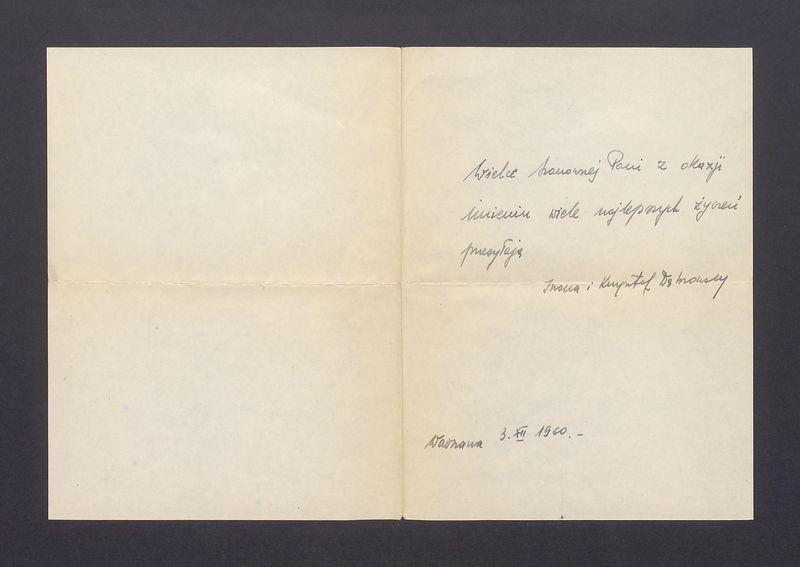 Wielce Szanownej Pani z okazji
imienin wiele najlepszych życzeń
przesyłają
Iwona i Krzysztof Dąbrowscy
Warszawa 3.XII 1960.-